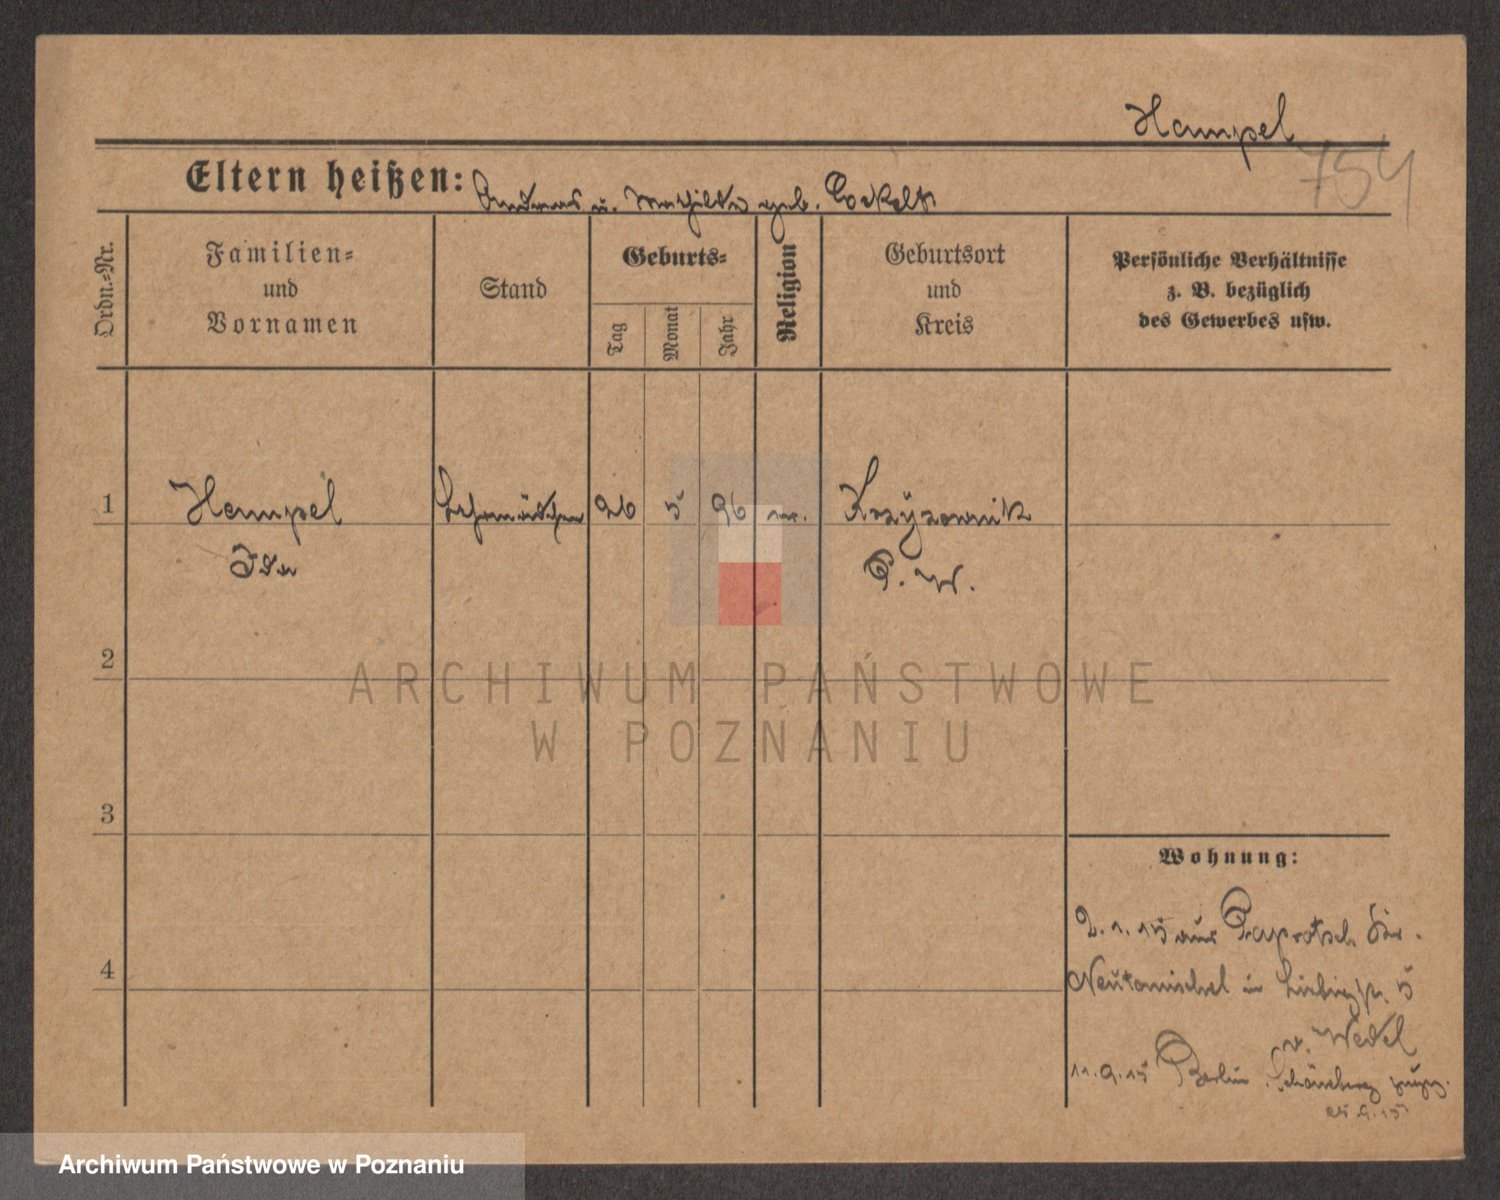 Hampel
754
Eltern heißen: Andreas u. Mathilde geb.
Ordn.-Nr.
Familien-
und
Vornamen
Stand
Geburts-
Tag
Monat
Jahr
Religion
Geburtsort
und
Kreis
Persönliche Verhältnisse
z. B. bezüglich
des Gewerbes usw.
1 Hampel 26 5 96 Krzyżownik
Ida P. W.
2
3
4
Wohnung:
2.1.15 aus Paprotsch Kr.
Neutomischel in 5
v. Wedel
11.9.15 Berlin Schöneberg
ARCHIWUM PAŃSTWOWE
W POZNANIU
Archiwum Państwowe w Poznaniu